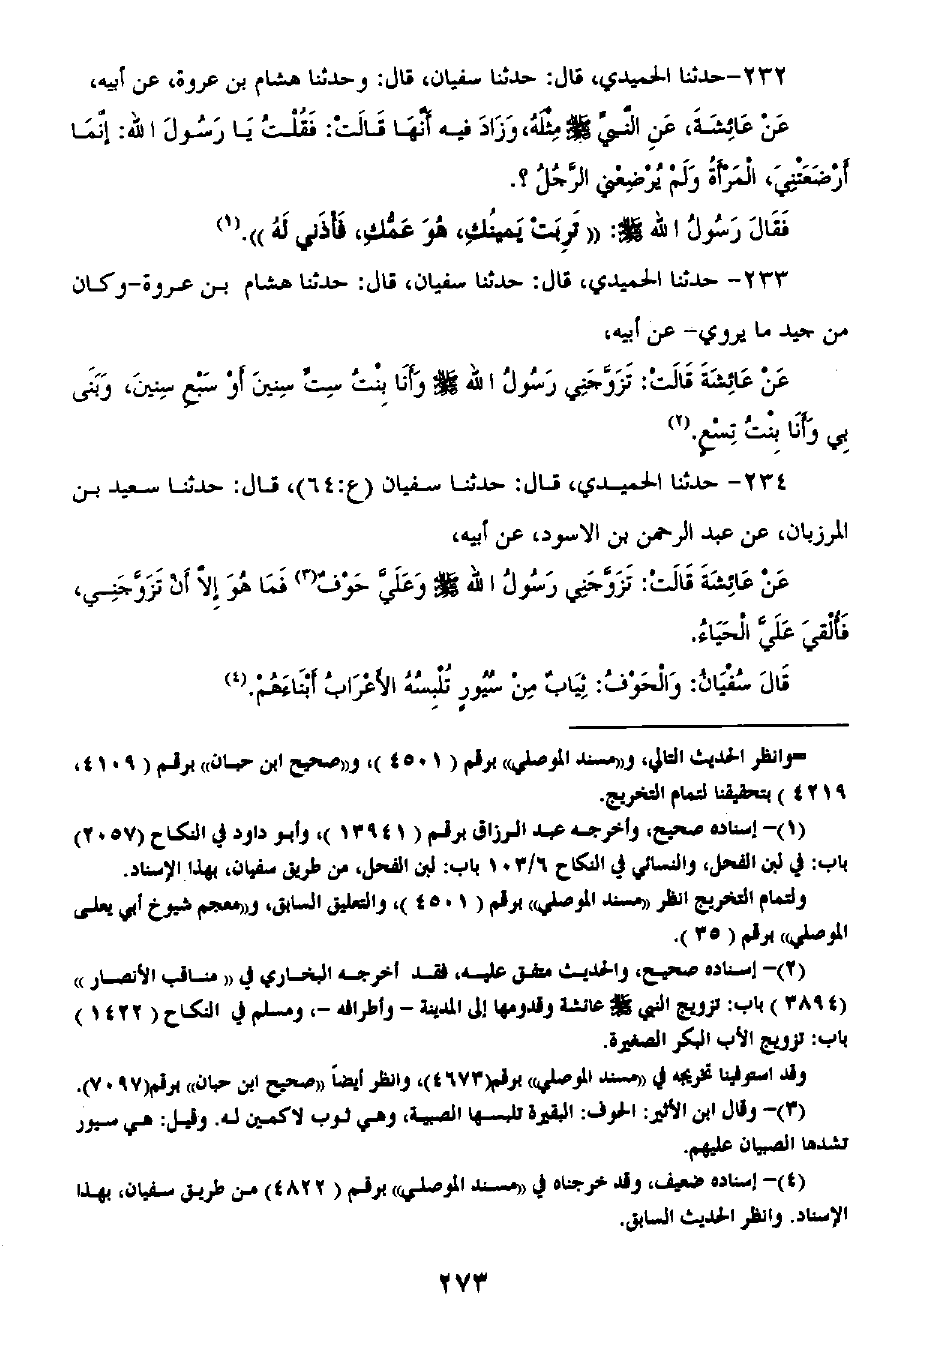 ٢٣٢-حدثنا الحميدي، قال: حدثنا سفيان، قال: وحدثنا هشام بن عروة، عن أبيه،
عَنْ عَائِشَةَ، عَنِ النَّبِيِّ ﷺ مِثْلَهُ، وَزَادَ فيه أَنَّهَا قَالَتْ: فَقُلْتُ يَا رَسُولَ اللهِ: إِنَّمَا
أَرْضَعَتْنِيَ، الْمَرْأَةُ وَلَمْ يُرْضِعْنِي الرَّجُلُ؟.
فَقَالَ رَسُولُ اللهِ ﷺ: «تَرِبَتْ يَمِينُكِ، هُوَ عَمُّكِ، فَأْذَنِي لَهُ».(١)
٢٣٣- حدثنا الحميدي، قال: حدثنا سفيان، قال: حدثنا هشام بن عروة-وكان
من جيد ما يروي- عن أبيه،
عَنْ عَائِشَةَ قَالَتْ: تَزَوَّجَنِي رَسُولُ اللهِ ﷺ وَأَنَا بِنْتُ سِتِّ سِنِينَ أَوْ سَبْعِ سِنِينَ، وَبَنَى
بِي وَأَنَا بِنْتُ تِسْعٍ.(٢)
٢٣٤- حدثنا الحميدي، قال: حدثنا سفيان (ع:٦٤)، قال: حدثنا سعيد بن
المرزبان، عن عبد الرحمن بن الاسود، عن أبيه،
عَنْ عَائِشَةَ قَالَتْ: تَزَوَّجَنِي رَسُولُ اللهِ ﷺ وَعَلَيَّ حَوْفٌ(٣) فَمَا هُوَ إِلاَّ أَنْ تَزَوَّجَنِي،
فَأُلْقِيَ عَلَيَّ الْحَيَاءُ.
قَالَ سُفْيَانُ: وَالْحَوْفُ: ثِيَابٌ مِنْ سُيُورٍ تُلْبِسُهُ الأَعْرَابُ أَبْنَاءَهُمْ.(٤)
=وانظر الحديث التالي، و«مسند الموصلي» برقم (٤٥٠١)، و«صحيح ابن حبان» برقم (٤١٠٩،
٤٢١٩) بتحقيقنا لتمام التخريج.
(١)- إسناده صحيح، وأخرجه عبد الرزاق برقم (١٣٩٤١)، وأبو داود في النكاح (٢٠٥٧)
باب: في لبن الفحل، والنسائي في النكاح ١٠٣/٦ باب: لبن الفحل، من طريق سفيان، بهذا الإسناد.
ولتمام التخريج انظر «مسند الموصلي» برقم (٤٥٠١)، والتعليق السابق، و«معجم شيوخ أبي يعلى
الموصلي» برقم (٣٥).
(٢)- إسناده صحيح، والحديث متفق عليه، فقد أخرجه البخاري في «مناقب الأنصار»
(٣٨٩٤) باب: تزويج النبي ﷺ عائشة وقدومها إلى المدينة - وأطرافه -، ومسلم في النكاح (١٤٢٢)
باب: تزويج الأب البكر الصغيرة.
وقد استوفينا تخريجه في «مسند الموصلي» برقم(٤٦٧٣)، وانظر أيضاً «صحيح ابن حبان» برقم(٧٠٩٧).
(٣)- وقال ابن الأثير: الحوف: البقيرة تلبسها الصبية، وهي ثوب لاكمين له. وقيل: هي سيور
تشدها الصبيان عليهم.
(٤)- إسناده ضعيف، وقد خرجناه في «مسند الموصلي» برقم (٤٨٢٢) من طريق سفيان، بهذا
الإسناد. وانظر الحديث السابق.
٢٧٣